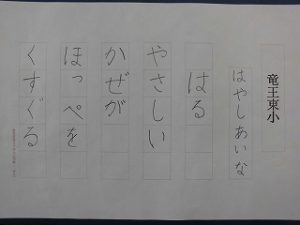 竜王東小
はやしあいな
はる
やさしい
かぜが
ほっぺを
くすぐる